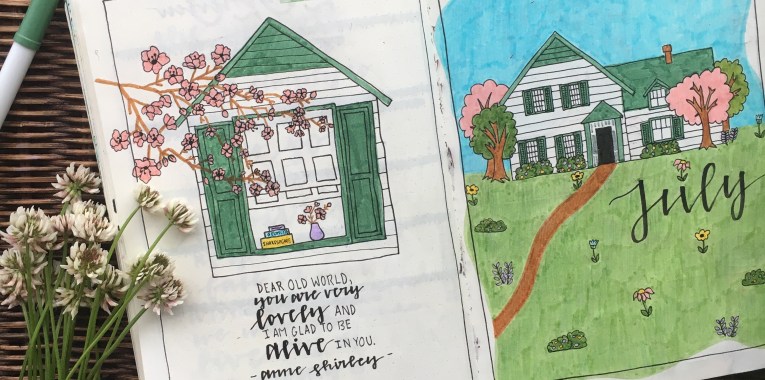 DEAR OLD WORLD,
you are very
lovely AND
I AM GLAD TO BE
alive IN YOU.
- anne shirley -
July